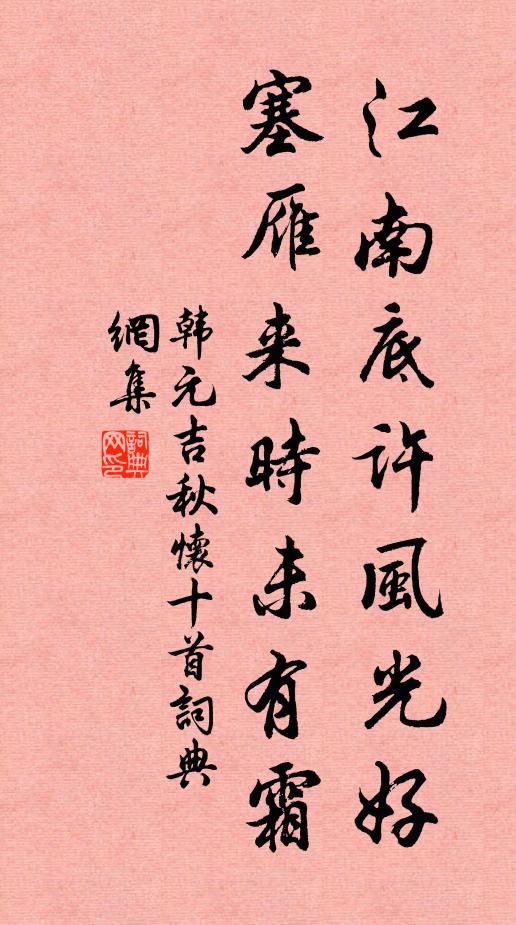 江南底许風光好
塞雁来時未有霜
韩元吉秋懷十首詞典
網集
詞典網印